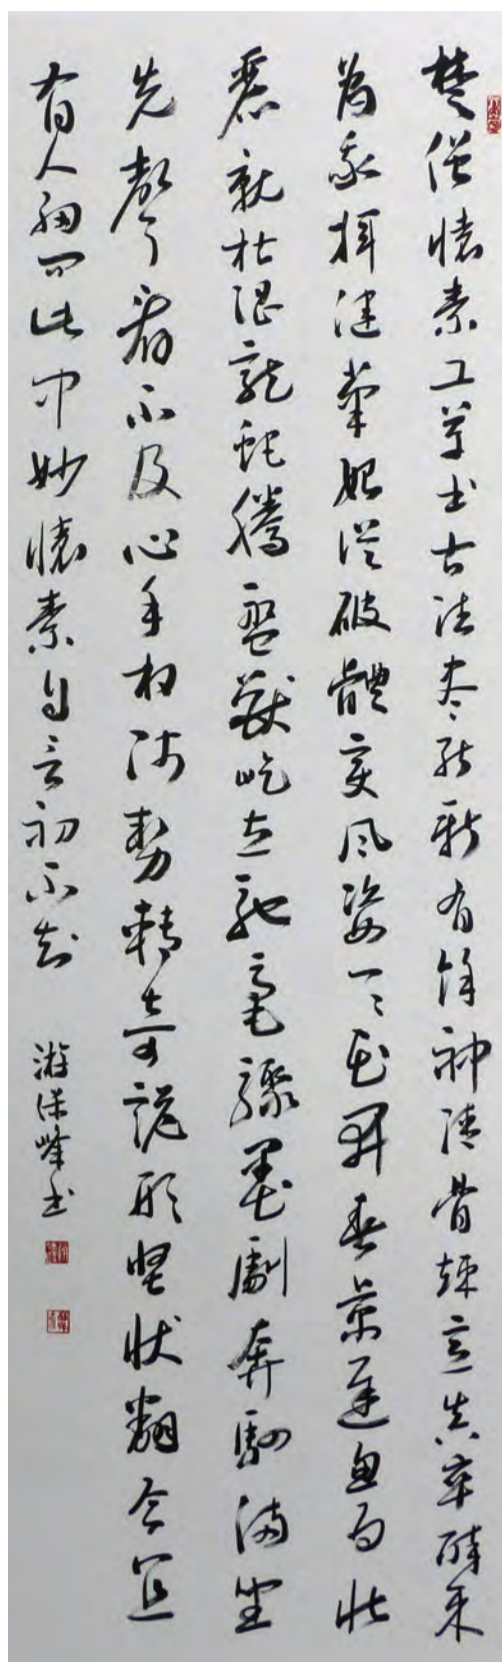 楚僧懷素工草书古法盡能新有馀神清骨竦意真率醉来
为我揮健筆始從破體变風姿一一花開春景遲忽为壮
麗就枯澀龍蛇騰盤獸屹立馳毫驟墨劇奔駟滿坐
失聲看不及心手相师勢轉奇詭形怪状翻合宜
有人細问此中妙懷素自言初不知
游保峰书